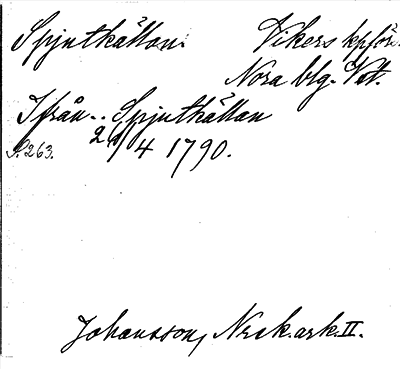 Spjutkällan. Vikers kpför.
Nora blg. Vstm.
Ifrån.. Spjutkällan
S. 263. 21/4 1790.
Johansson, Norsk. ark. II.